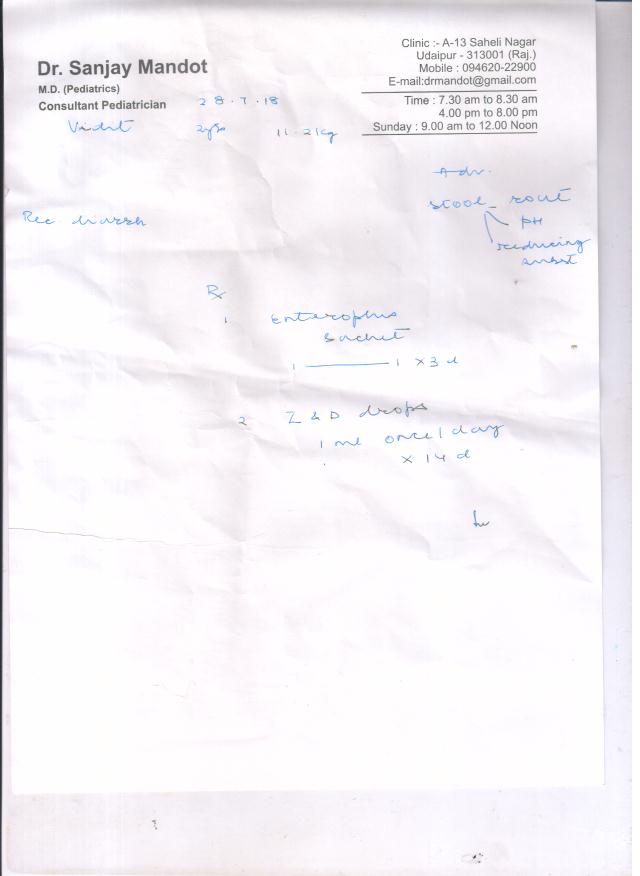 Dr. Sanjay Mandot
M.D. (Pediatrics)
Consultant Pediatrician
Clinic :- A-13 Saheli Nagar
Udaipur - 313001 (Raj.)
Mobile : 094620-22900
E-mail:drmandot@gmail.com
Time : 7.30 am to 8.30 am
4.00 pm to 8.00 pm
Sunday : 9.00 am to 12.00 Noon
28.7.18
Vidit 2yrs 11.21kg
Adv.
Stool rout
PH
reducing
Rec.
Rx
1 Enteroplus
Sachet
1 — 1 x 3 d
2 Z & D drops
1 ml once / day
x 14 d